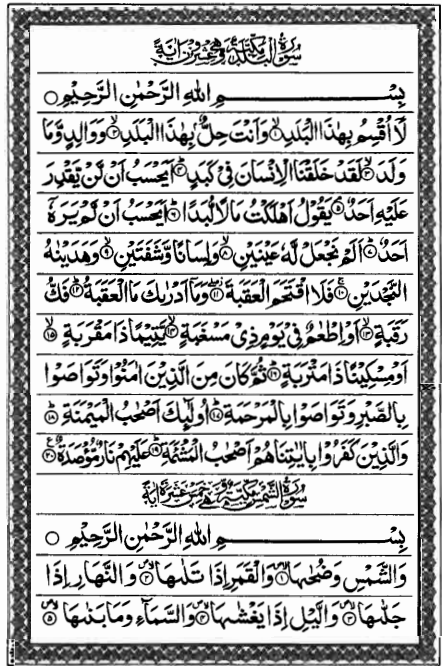 سُوْرَةُ الْبَلَدِ مَكِّيَّةٌ وَّهِیَ عِشْرُوْنَ اٰيَةً
بِسْمِ اللهِ الرَّحْمٰنِ الرَّحِيْمِ
لَآ اُقْسِمُ بِهٰذَا الْبَلَدِ ۱ وَاَنْتَ حِلٌّۢ بِهٰذَا الْبَلَدِ ۲ وَوَالِدٍ وَّمَا
وَلَدَ ۳ لَقَدْ خَلَقْنَا الْاِنْسَانَ فِيْ كَبَدٍ ۴ اَيَحْسَبُ اَنْ لَّنْ يَّقْدِرَ
عَلَيْهِ اَحَدٌ ۵ يَقُوْلُ اَهْلَكْتُ مَالًا لُّبَدًا ۶ اَيَحْسَبُ اَنْ لَّمْ يَرَهٗۤ
اَحَدٌ ۷ اَلَمْ نَجْعَلْ لَّهٗ عَيْنَيْنِ ۸ وَلِسَانًا وَّشَفَتَيْنِ ۹ وَهَدَيْنٰهُ
النَّجْدَيْنِ ۱۰ فَلَا اقْتَحَمَ الْعَقَبَةَ ۱۱ وَمَآ اَدْرٰىكَ مَا الْعَقَبَةُ ۱۲ فَكُّ
رَقَبَةٍ ۱۳ اَوْ اِطْعٰمٌ فِيْ يَوْمٍ ذِيْ مَسْغَبَةٍ ۱۴ يَّتِيْمًا ذَا مَقْرَبَةٍ ۱۵
اَوْ مِسْكِيْنًا ذَا مَتْرَبَةٍ ۱۶ ثُمَّ كَانَ مِنَ الَّذِيْنَ اٰمَنُوْا وَتَوَاصَوْا
بِالصَّبْرِ وَتَوَاصَوْا بِالْمَرْحَمَةِ ۱۷ اُولٰٓئِكَ اَصْحٰبُ الْمَيْمَنَةِ ۱۸
وَالَّذِيْنَ كَفَرُوْا بِاٰيٰتِنَا هُمْ اَصْحٰبُ الْمَشْـَٔمَةِ ۱۹ عَلَيْهِمْ نَارٌ مُّؤْصَدَةٌ ۲۰
سُوْرَةُ الشَّمْسِ مَكِّيَّةٌ وَّهِیَ خَمْسَ عَشْرَةَ اٰيَةً
بِسْمِ اللهِ الرَّحْمٰنِ الرَّحِيْمِ
وَالشَّمْسِ وَضُحٰىهَا ۱ وَالْقَمَرِ اِذَا تَلٰىهَا ۲ وَالنَّهَارِ اِذَا
جَلّٰىهَا ۳ وَالَّيْلِ اِذَا يَغْشٰىهَا ۴ وَالسَّمَآءِ وَمَا بَنٰىهَا ۵